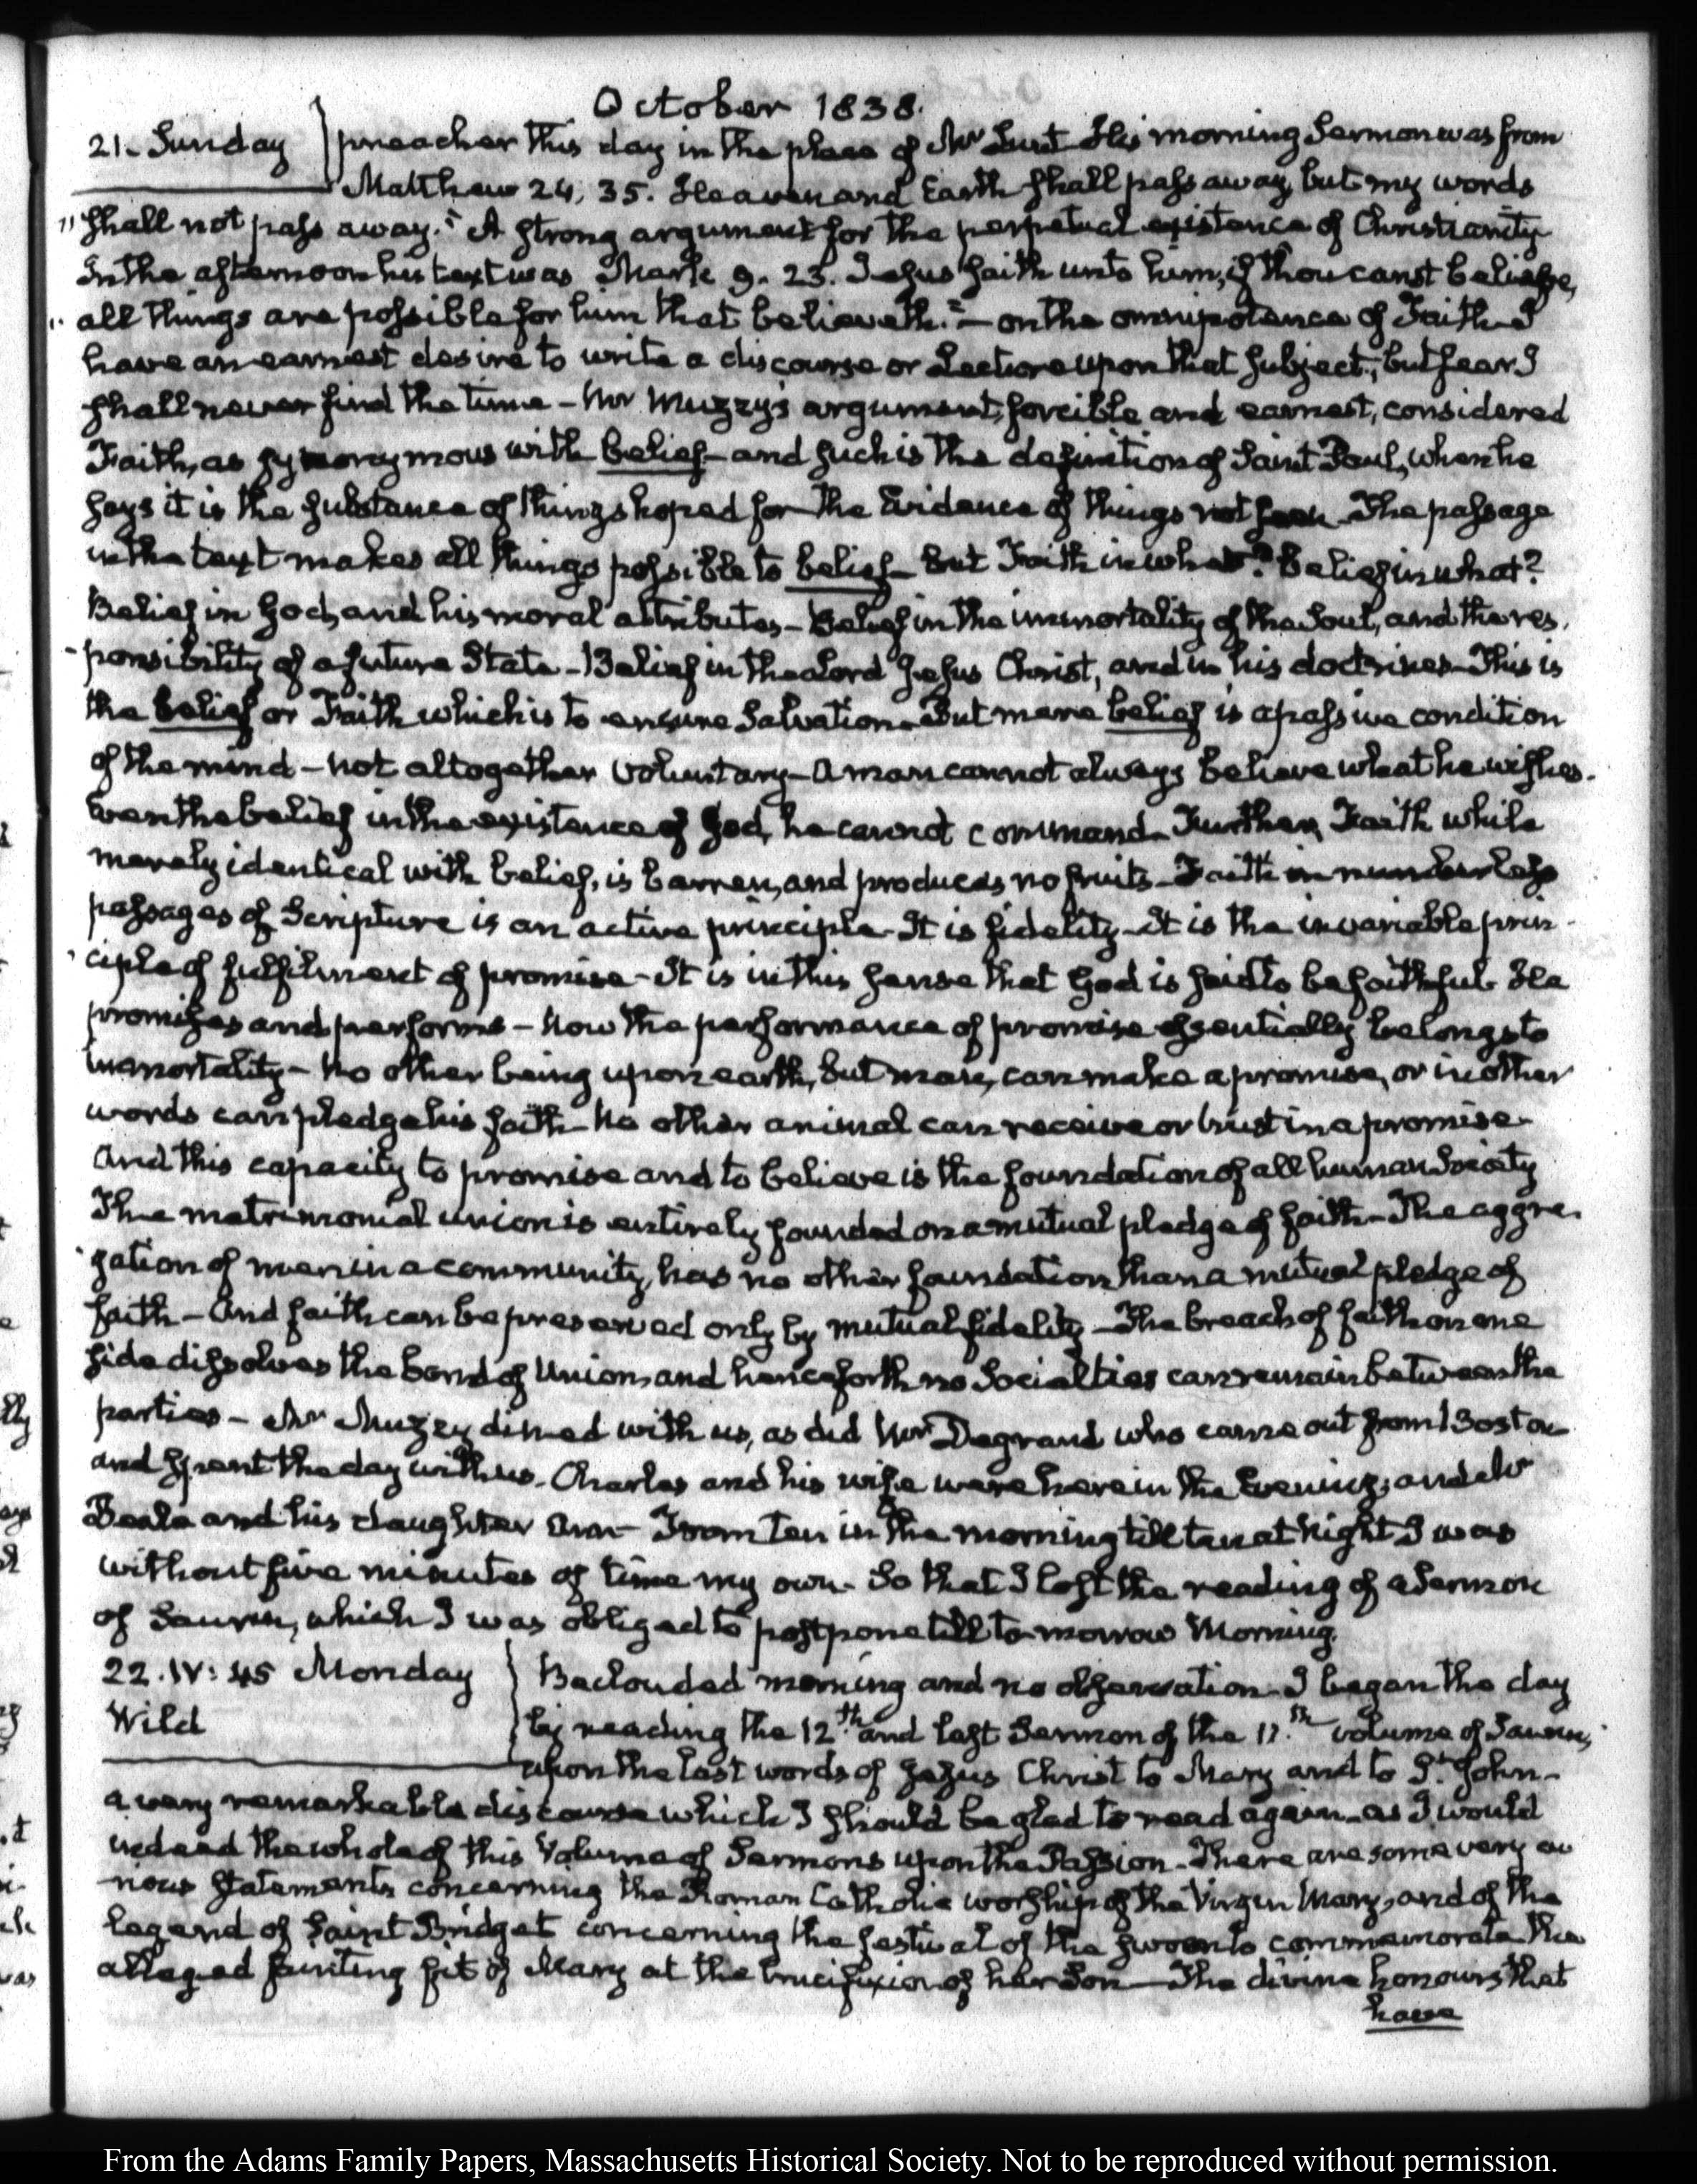 October 1838.
21. Sunday } preacher this day in the place of Mr Lunt His morning Sermon was from
Matthew 24, 35. Heaven and Earth shall pass away, but my words
" shall not pass away." A strong argument for the perpetual existence of Christianity
In the afternoon his text was Mark 9. 23. Jesus saith unto him, if thou canst believe,
" all things are possible for him that believeth." – on the omnipotence of Faith – I
have an earnest desire to write a discourse or Lecture upon that subject; but fear I
shall never find the time – Mr Muzzy's argument, forcible and earnest, considered
Faith, as synonymous with belief – and such is the definition of Saint Paul, when he
says it is the substance of things hoped for the Evidence of things not seen – The passage
in the text makes all things possible to belief – But Faith in what? Belief in what?
Belief in God, and his moral attributes – Belief in the immortality of the Soul, and the res-
-ponsibility of a future State – Belief in the Lord Jesus Christ, and in his doctrines – This is
the belief or Faith which is to ensure Salvation – But mere belief is a passive condition
of the mind – not altogether voluntary – A man cannot always believe what he wishes.
Even the belief in the existence of God, he cannot command – Further, Faith while
merely identical with belief, is barren, and produces no fruits – Faith in numberless
passages of Scripture is an active principle – It is fidelity – It is the invariable prin-
-ciple of fulfilment of promise – It is in this sense that God is said to be faithful. He
promises and performs – Now the performance of promise essentially belongs to
immortality – No other being upon earth, but man, can make a promise, or in other
words can pledge his faith – No other animal can receive or trust in a promise –
And this capacity to promise and to believe is the foundation of all human Society
The matrimonial union is entirely founded on a mutual pledge of faith – The aggre-
-gation of men in a community, has no other foundation than a mutual pledge of
faith – And faith can be preserved only by mutual fidelity – The breach of faith on one
side dissolves the bond of Union, and henceforth no Social ties can remain between the
parties – Mr Muzzey dined with us, as did Mr Degrand who came out from Boston
and spent the day with us. Charles and his wife were here in the Evening; and Mr
Beale and his daughter Ann – From Ten in the morning till ten at Night I was
without five minutes of time my own – So that I lost the reading of a Sermon
of Saurin, which I was obliged to postpone till to-morrow Morning.
22. IV: 45 Monday } Beclouded morning and no observation – I began the day
Wild by reading the 12th and last Sermon of the 11th volume of Saurin,
upon the last words of Jesus Christ to Mary and to St. John –
a very remarkable discourse which I should be glad to read again – as I would
indeed the whole of this Volume of Sermons upon the Passion – There are some very cu
-rious statements concerning the Roman Catholic worship of the Virgin Mary, and of the
legend of Saint Bridget concerning the festival of the swoon to commemorate the
alleged fainting fit of Mary at the crucifixion of her Son – The divine honours that
have
From the Adams Family Papers, Massachusetts Historical Society. Not to be reproduced without permission.